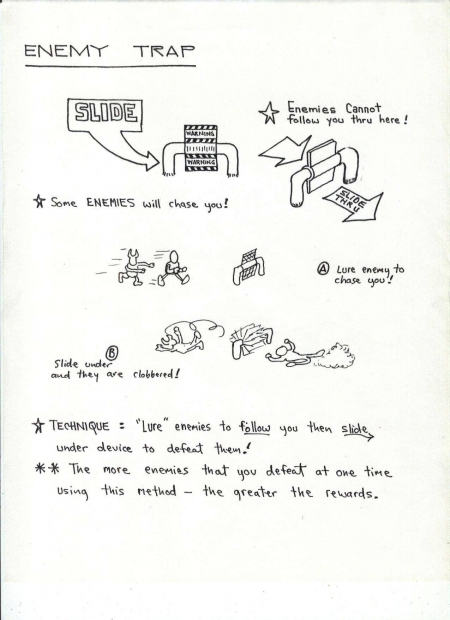 ENEMY TRAP
SLIDE
WARNING
WARNING
☆ Enemies Cannot
follow you thru here!
SLIDE
THRU
☆ Some ENEMIES will chase you!
Ⓐ Lure enemy to
chase you!
Ⓑ
Slide under
and they are clobbered!
☆ TECHNIQUE : "Lure" enemies to follow you then slide
under device to defeat them!
** The more enemies that you defeat at one time
using this method – the greater the rewards.